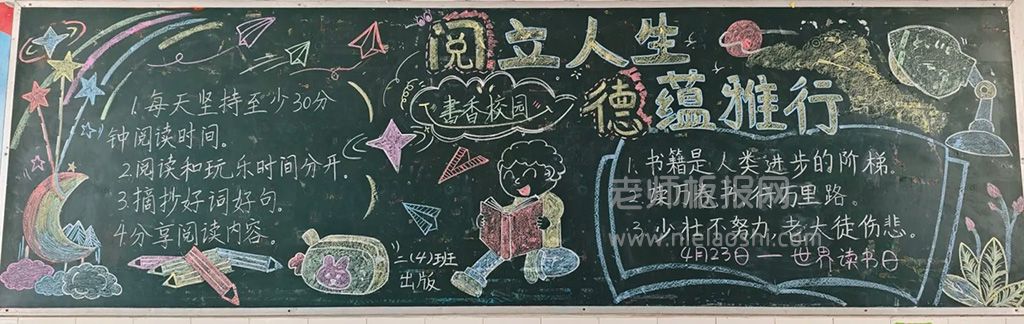 阅立人生
德蕴雅行
书香校园
1.每天坚持至少30分
钟阅读时间。
2.阅读和玩乐时间分开。
3.摘抄好词好句。
4分享阅读内容。
二(4)班
出版
1.书籍是人类进步的阶梯。
2.万里路。
3.少壮不努力,老大徒伤悲。
4月23日一世界读书日
老师板报网
www.melaoshi.com